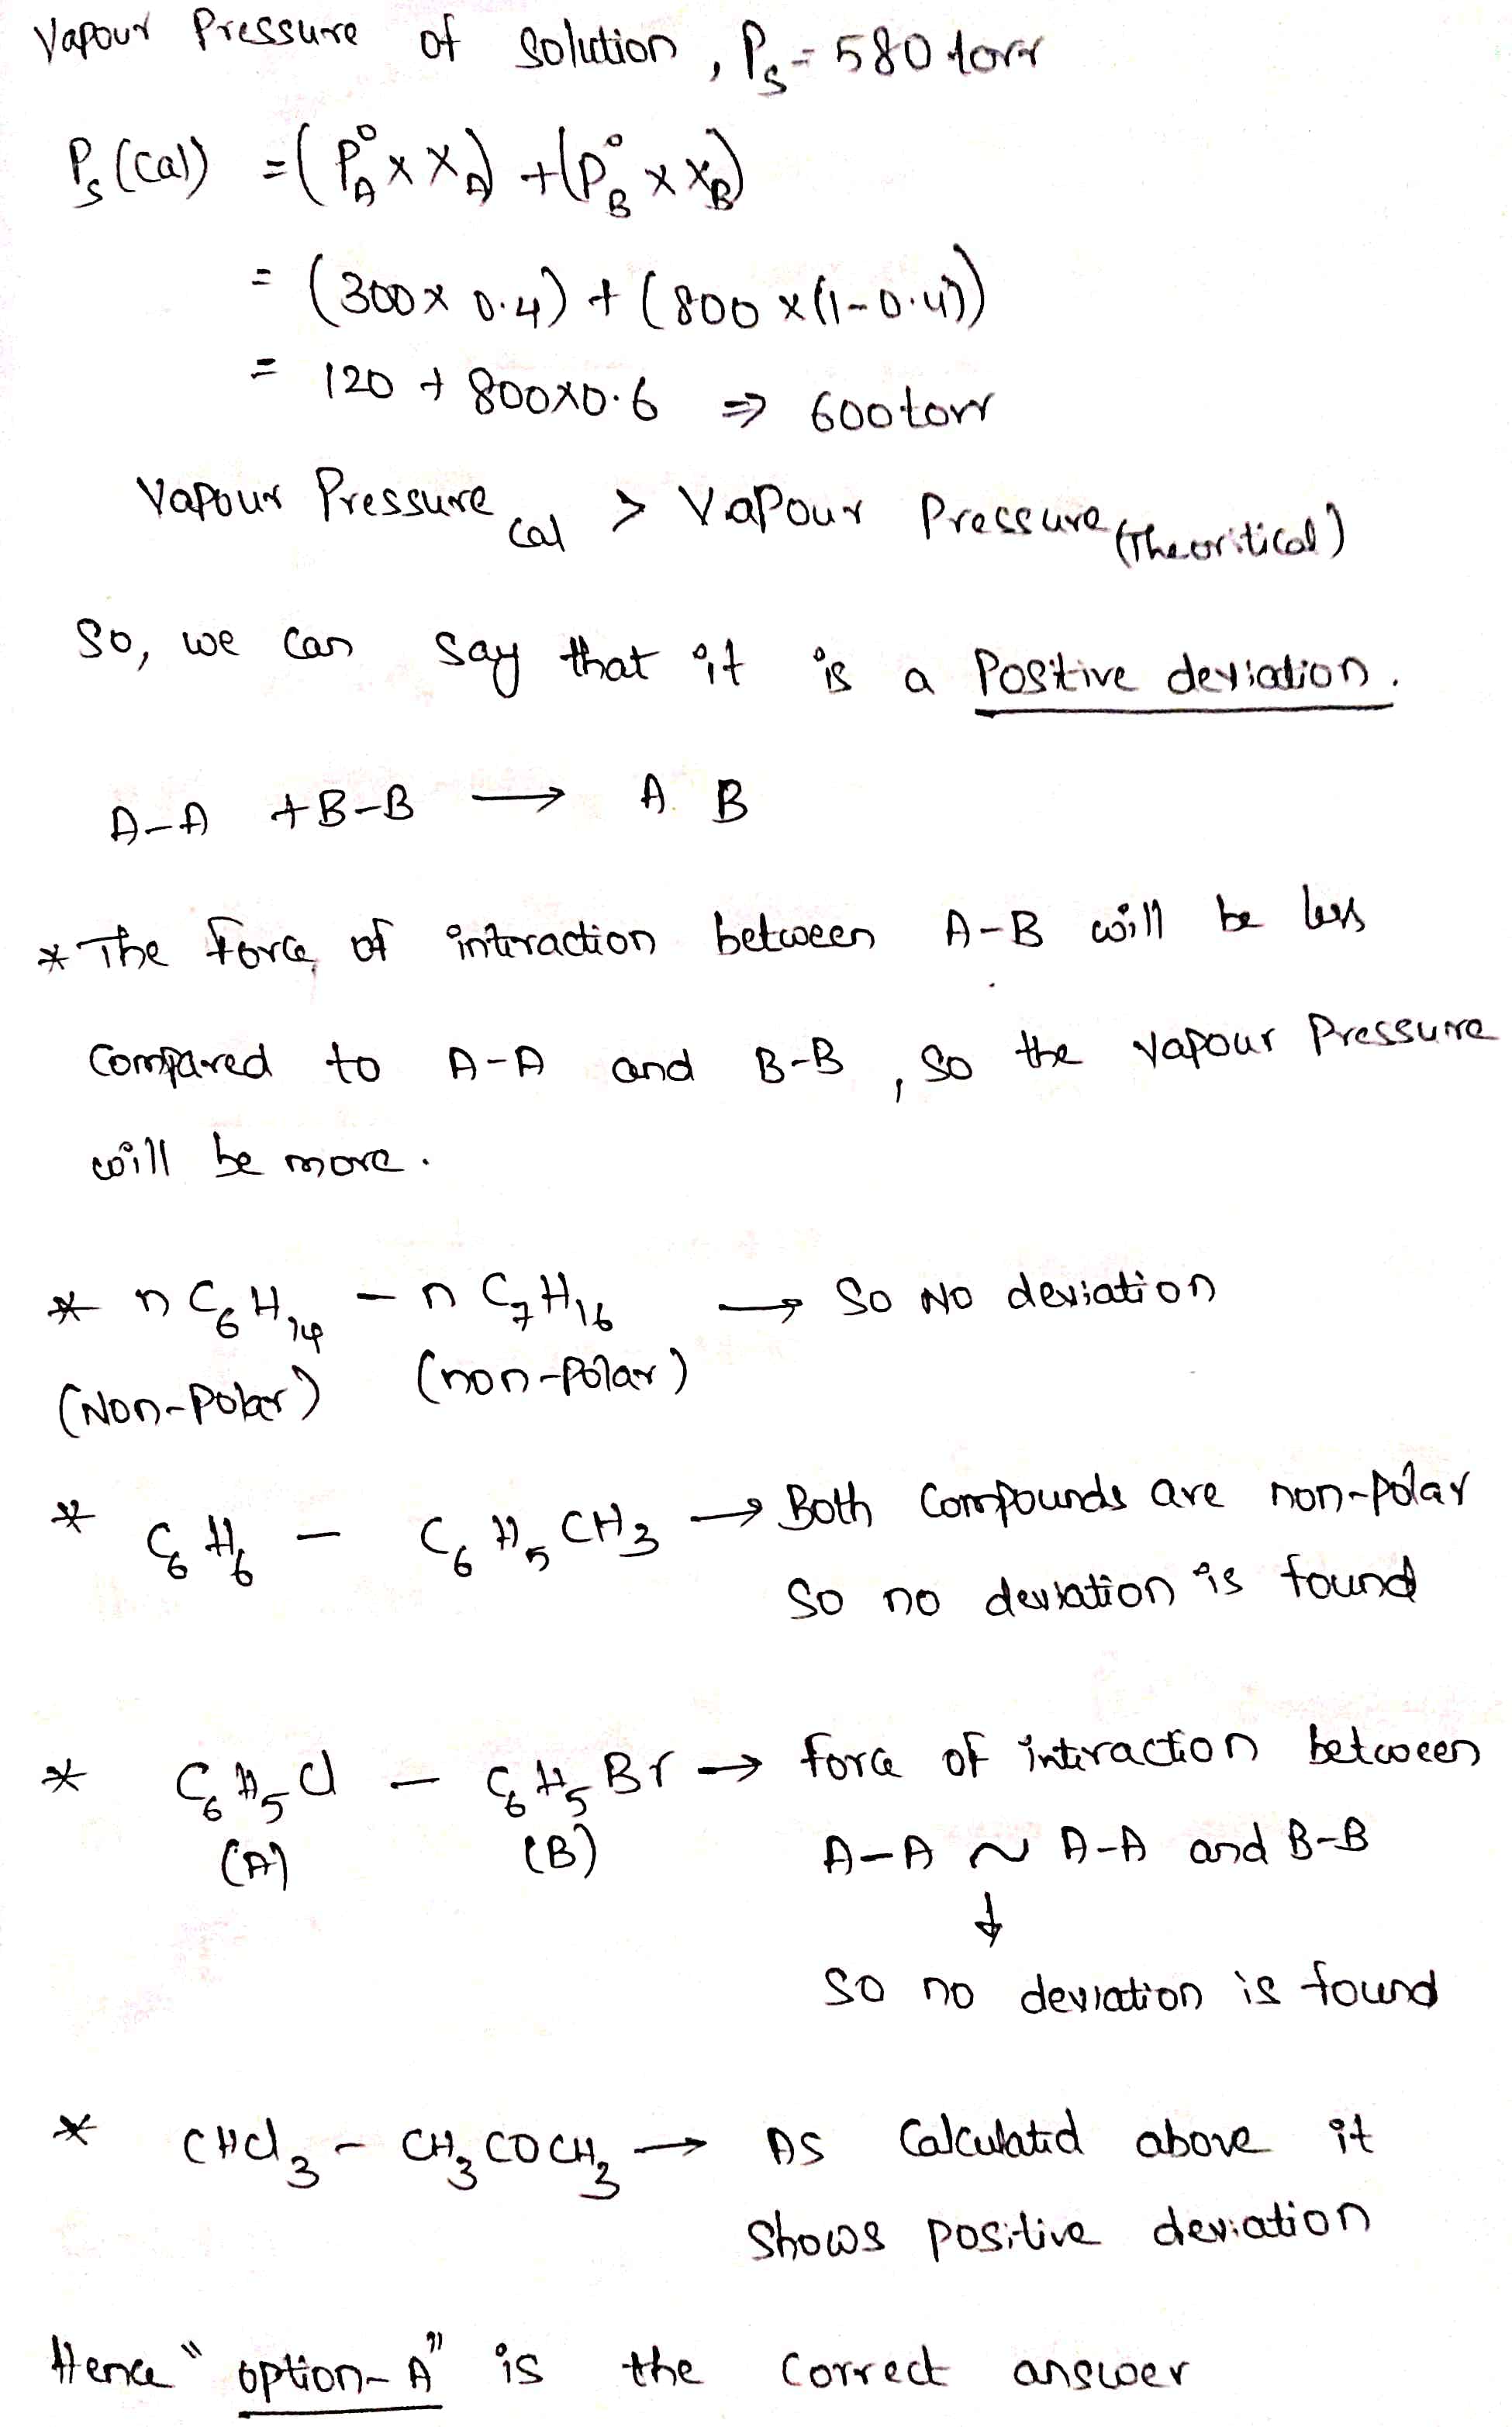 Vapour Pressure of Solution, Ps = 580 torr
Ps (cal) = (P°A × XA) + (P°B × XB)
= (300 × 0.4) + (800 × (1-0.4))
= 120 + 800×0.6 ⇒ 600 torr
Vapour Pressure cal > Vapour Pressure (Theoritical)
So, we can say that it is a Positive deviation.
A-A + B-B → A B
* The force of interaction between A-B will be less
Compared to A-A and B-B, So the vapour Pressure
will be more.
* n C6H14 - n C7H16 → So NO deviation
(Non-Polar) (non-Polar)
* C6H6 - C6H5CH3 → Both Compounds are non-polar
So no deviation is found
* C6H5Cl - C6H5Br → force of interaction between
(A) (B) A-A ~ A-A and B-B
↓
So no deviation is found
* CHCl3 - CH3COCH3 → As Calculated above it
Shows positive deviation
Hence "option-A" is the correct answer